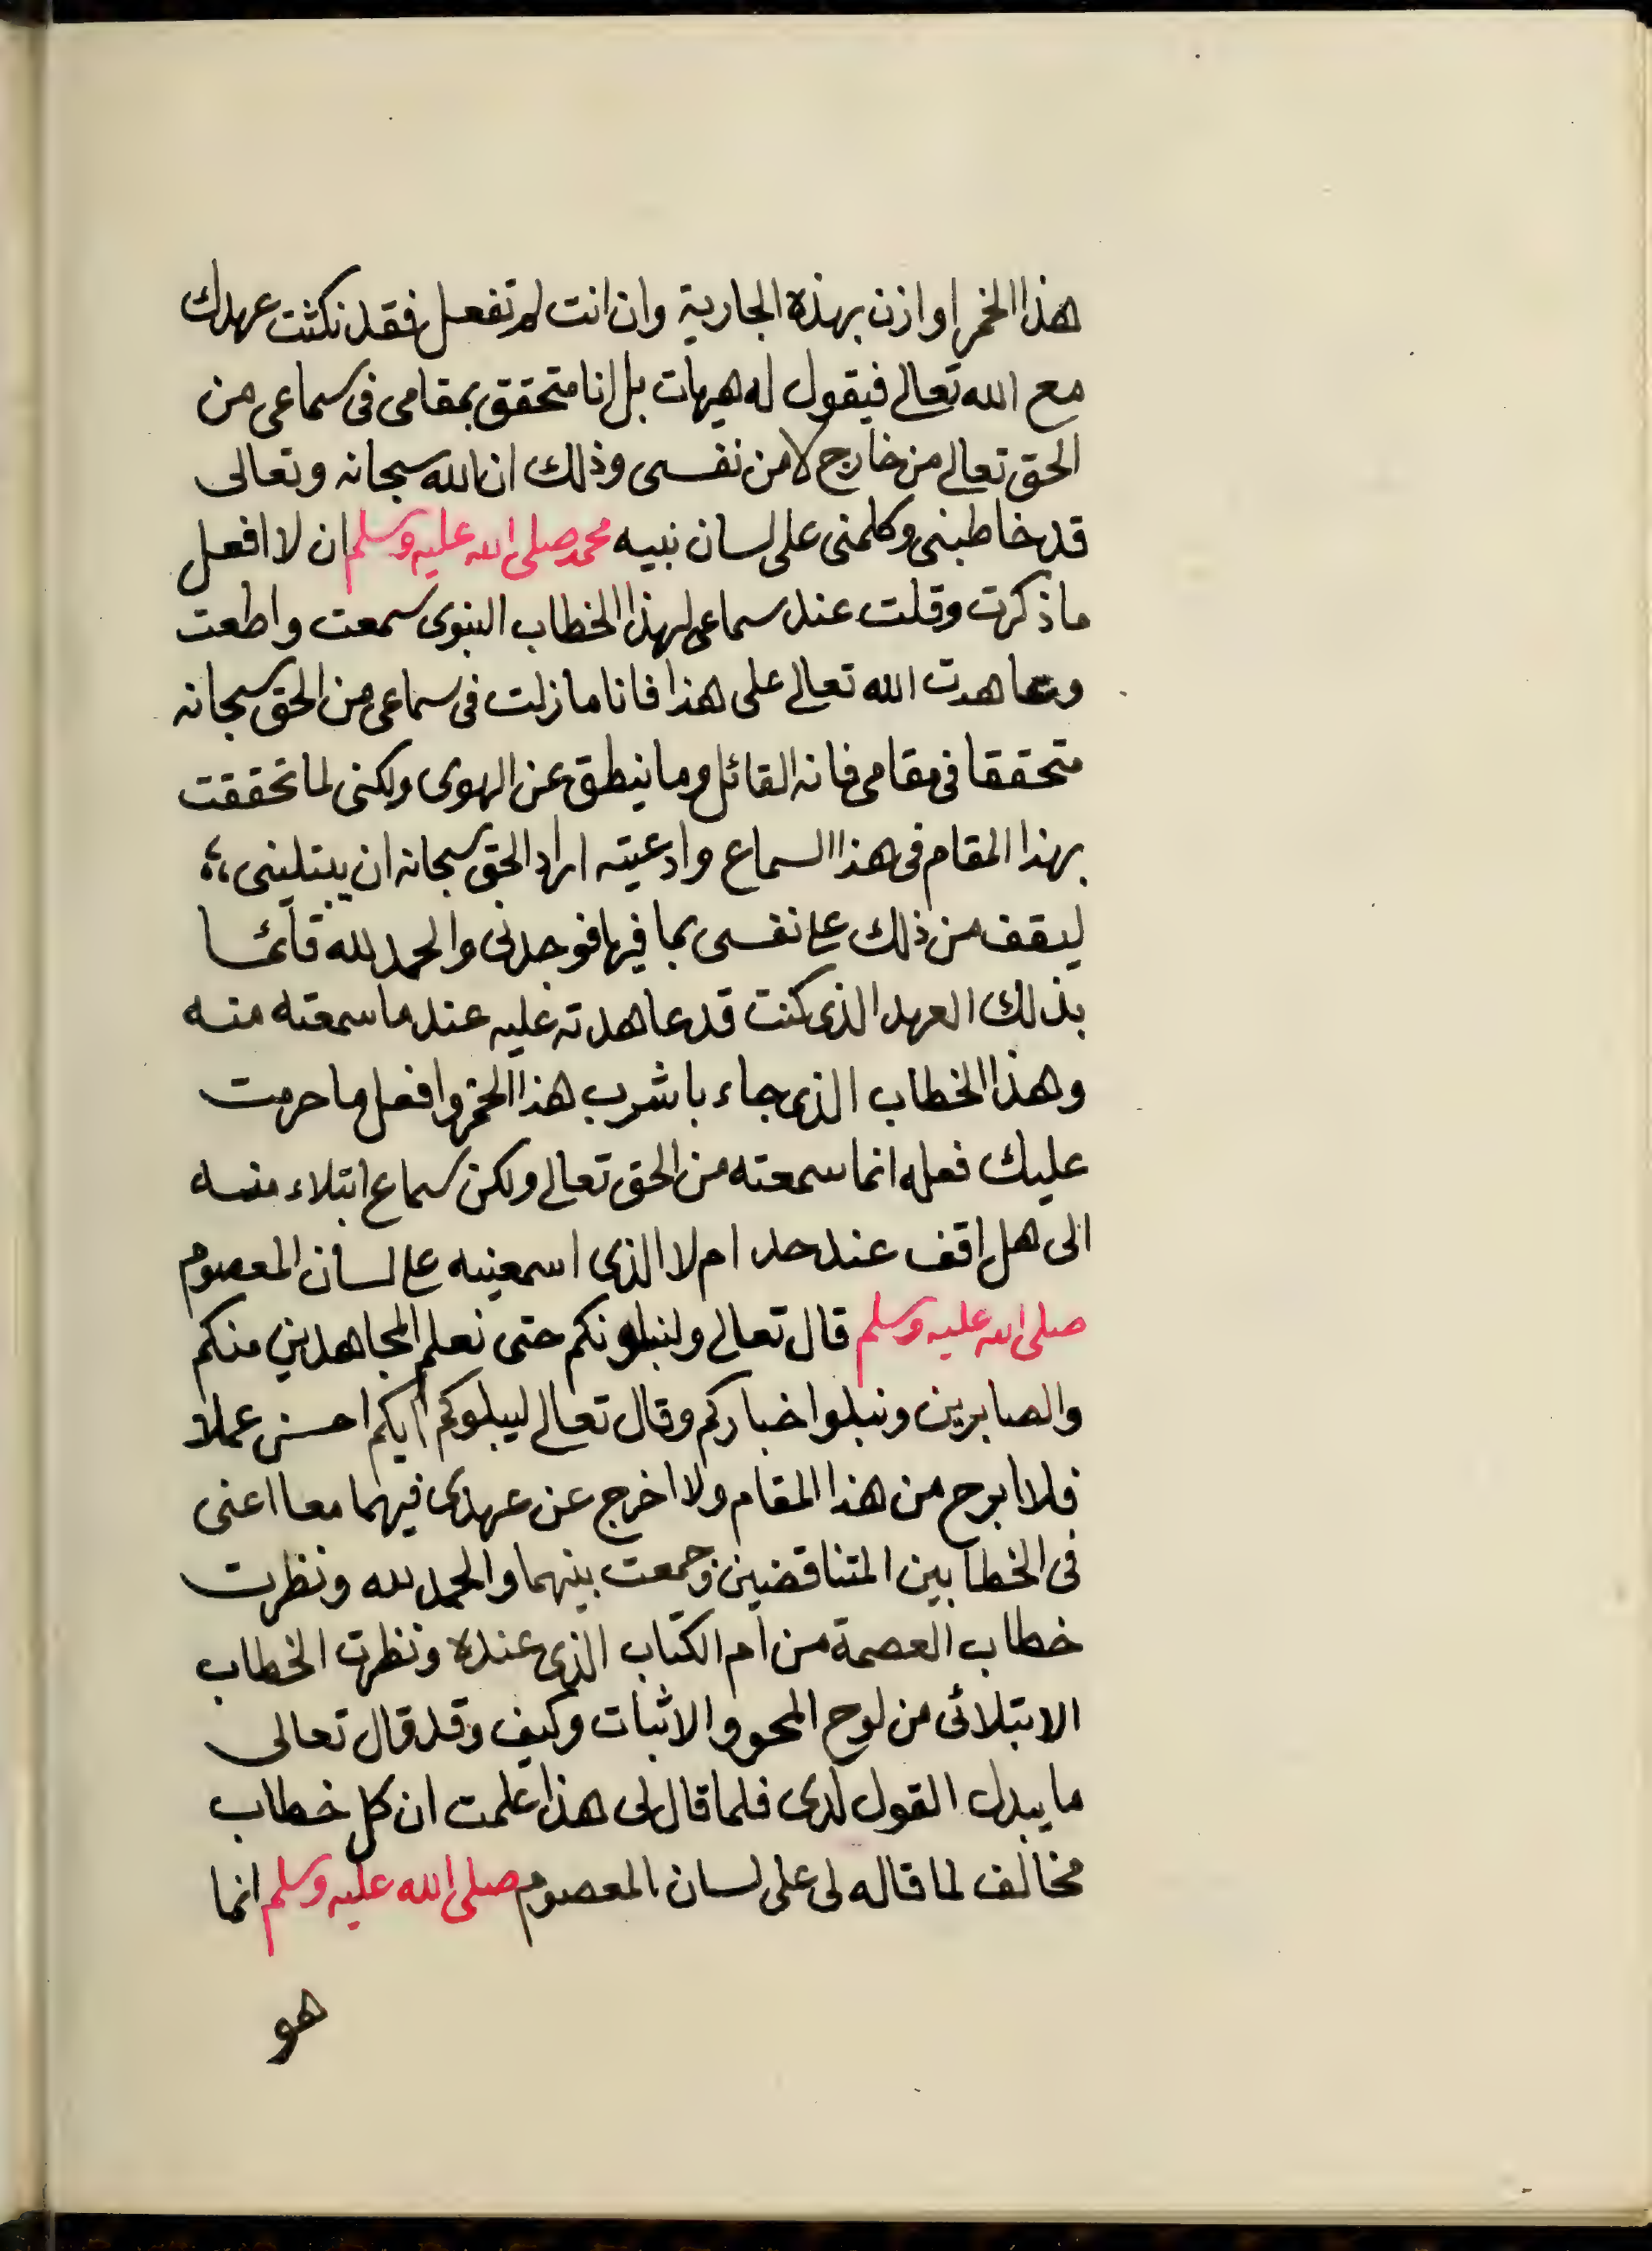 هذا الخمر او ازن بهذه الجارية وان انت لم تفعل فقد نكثت عهدك
مع الله تعالى فيقول له هيهات بل انا متحقق بمقامى فى سماعى من
الحق تعالى من خارج لا من نفسى وذلك ان الله سبحانه وتعالى
قد خاطبنى وكلمنى على لسان نبيه محمد صلى الله عليه وسلم ان لا افعل
ما ذكرت وقلت عند سماعى لهذا الخطاب النبوى سمعت واطعت
وعاهدت الله تعالى على هذا فانا ما زلت فى سماعى من الحق سبحانه
متحققا فى مقامى فانه القائل وما ينطق عن الهوى ولكنى لما تحققت
بهذا المقام فى هذا السماع وادعيته اراد الحق سبحانه ان يبتلينى
ليقف من ذلك على نفسى بما فيها فوجدنى والحمد لله قائما
بذلك العهد الذى كنت قد عاهدته عليه عند ما سمعته منه
وهذا الخطاب الذى جاء باشرب هذا الخمر وافعل ما حرمت
عليك فعله انما سمعته من الحق تعالى ولكن سماع ابتلاء منه
الى هل اقف عند حد ام لا الذى اسمعنيه على لسان المعصوم
صلى الله عليه وسلم قال تعالى ولنبلونكم حتى نعلم المجاهدين منكم
والصابرين ونبلوا خباركم وقال تعالى ليبلوكم ايكم احسن عملا
فلا ابرح من هذا المقام ولا اخرج عن عهدى فيهما معا اعنى
فى الخطابين المتناقضين وجمعت بينهما والحمد لله ونظرت
خطاب العصمة من ام الكتاب الذى عنده ونظرت الخطاب
الابتلائى من لوح المحو والاثبات وكيف وقد قال تعالى
ما يبدل القول لدى فلما قال لى هذا علمت ان كل خطاب
مخالف لما قاله لى على لسان المعصوم صلى الله عليه وسلم انما
هو